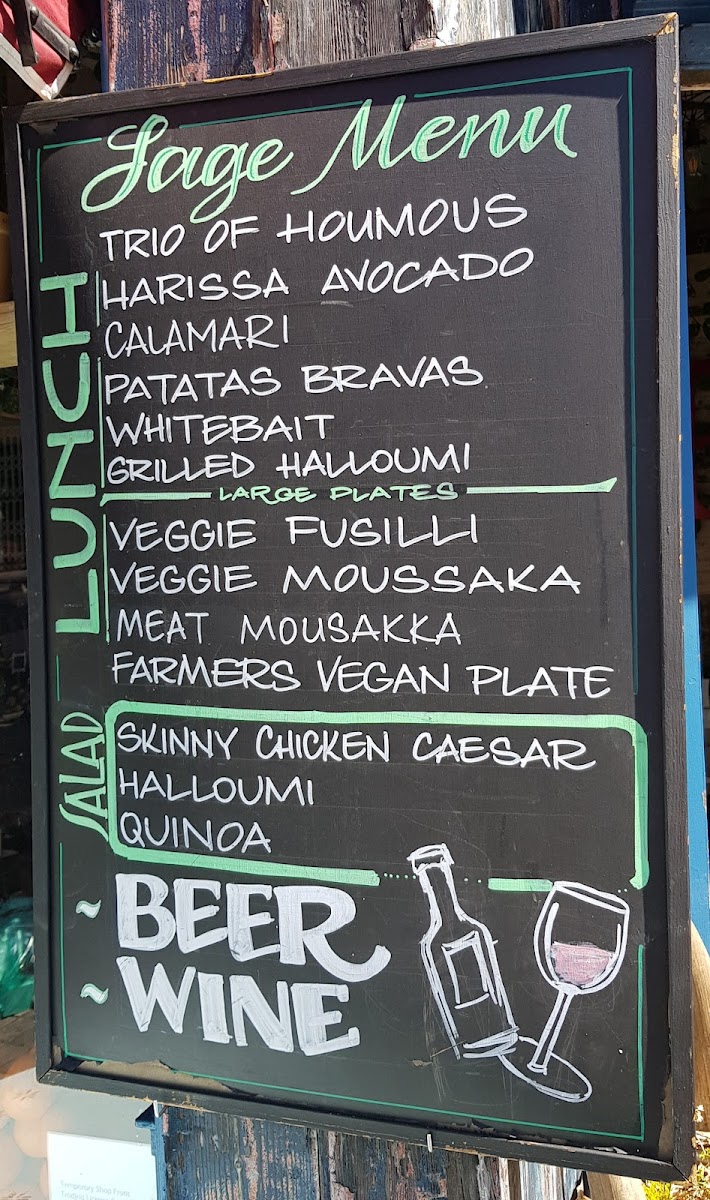 Sage Menu
LUNCH
TRIO OF HOUMOUS
HARISSA AVOCADO
CALAMARI
PATATAS BRAVAS
WHITEBAIT
GRILLED HALLOUMI
LARGE PLATES
VEGGIE FUSILLI
VEGGIE MOUSSAKA
MEAT MOUSAKKA
FARMERS VEGAN PLATE
SALAD
SKINNY CHICKEN CAESAR
HALLOUMI
QUINOA
~ BEER
~ WINE
Temporary Shop Front